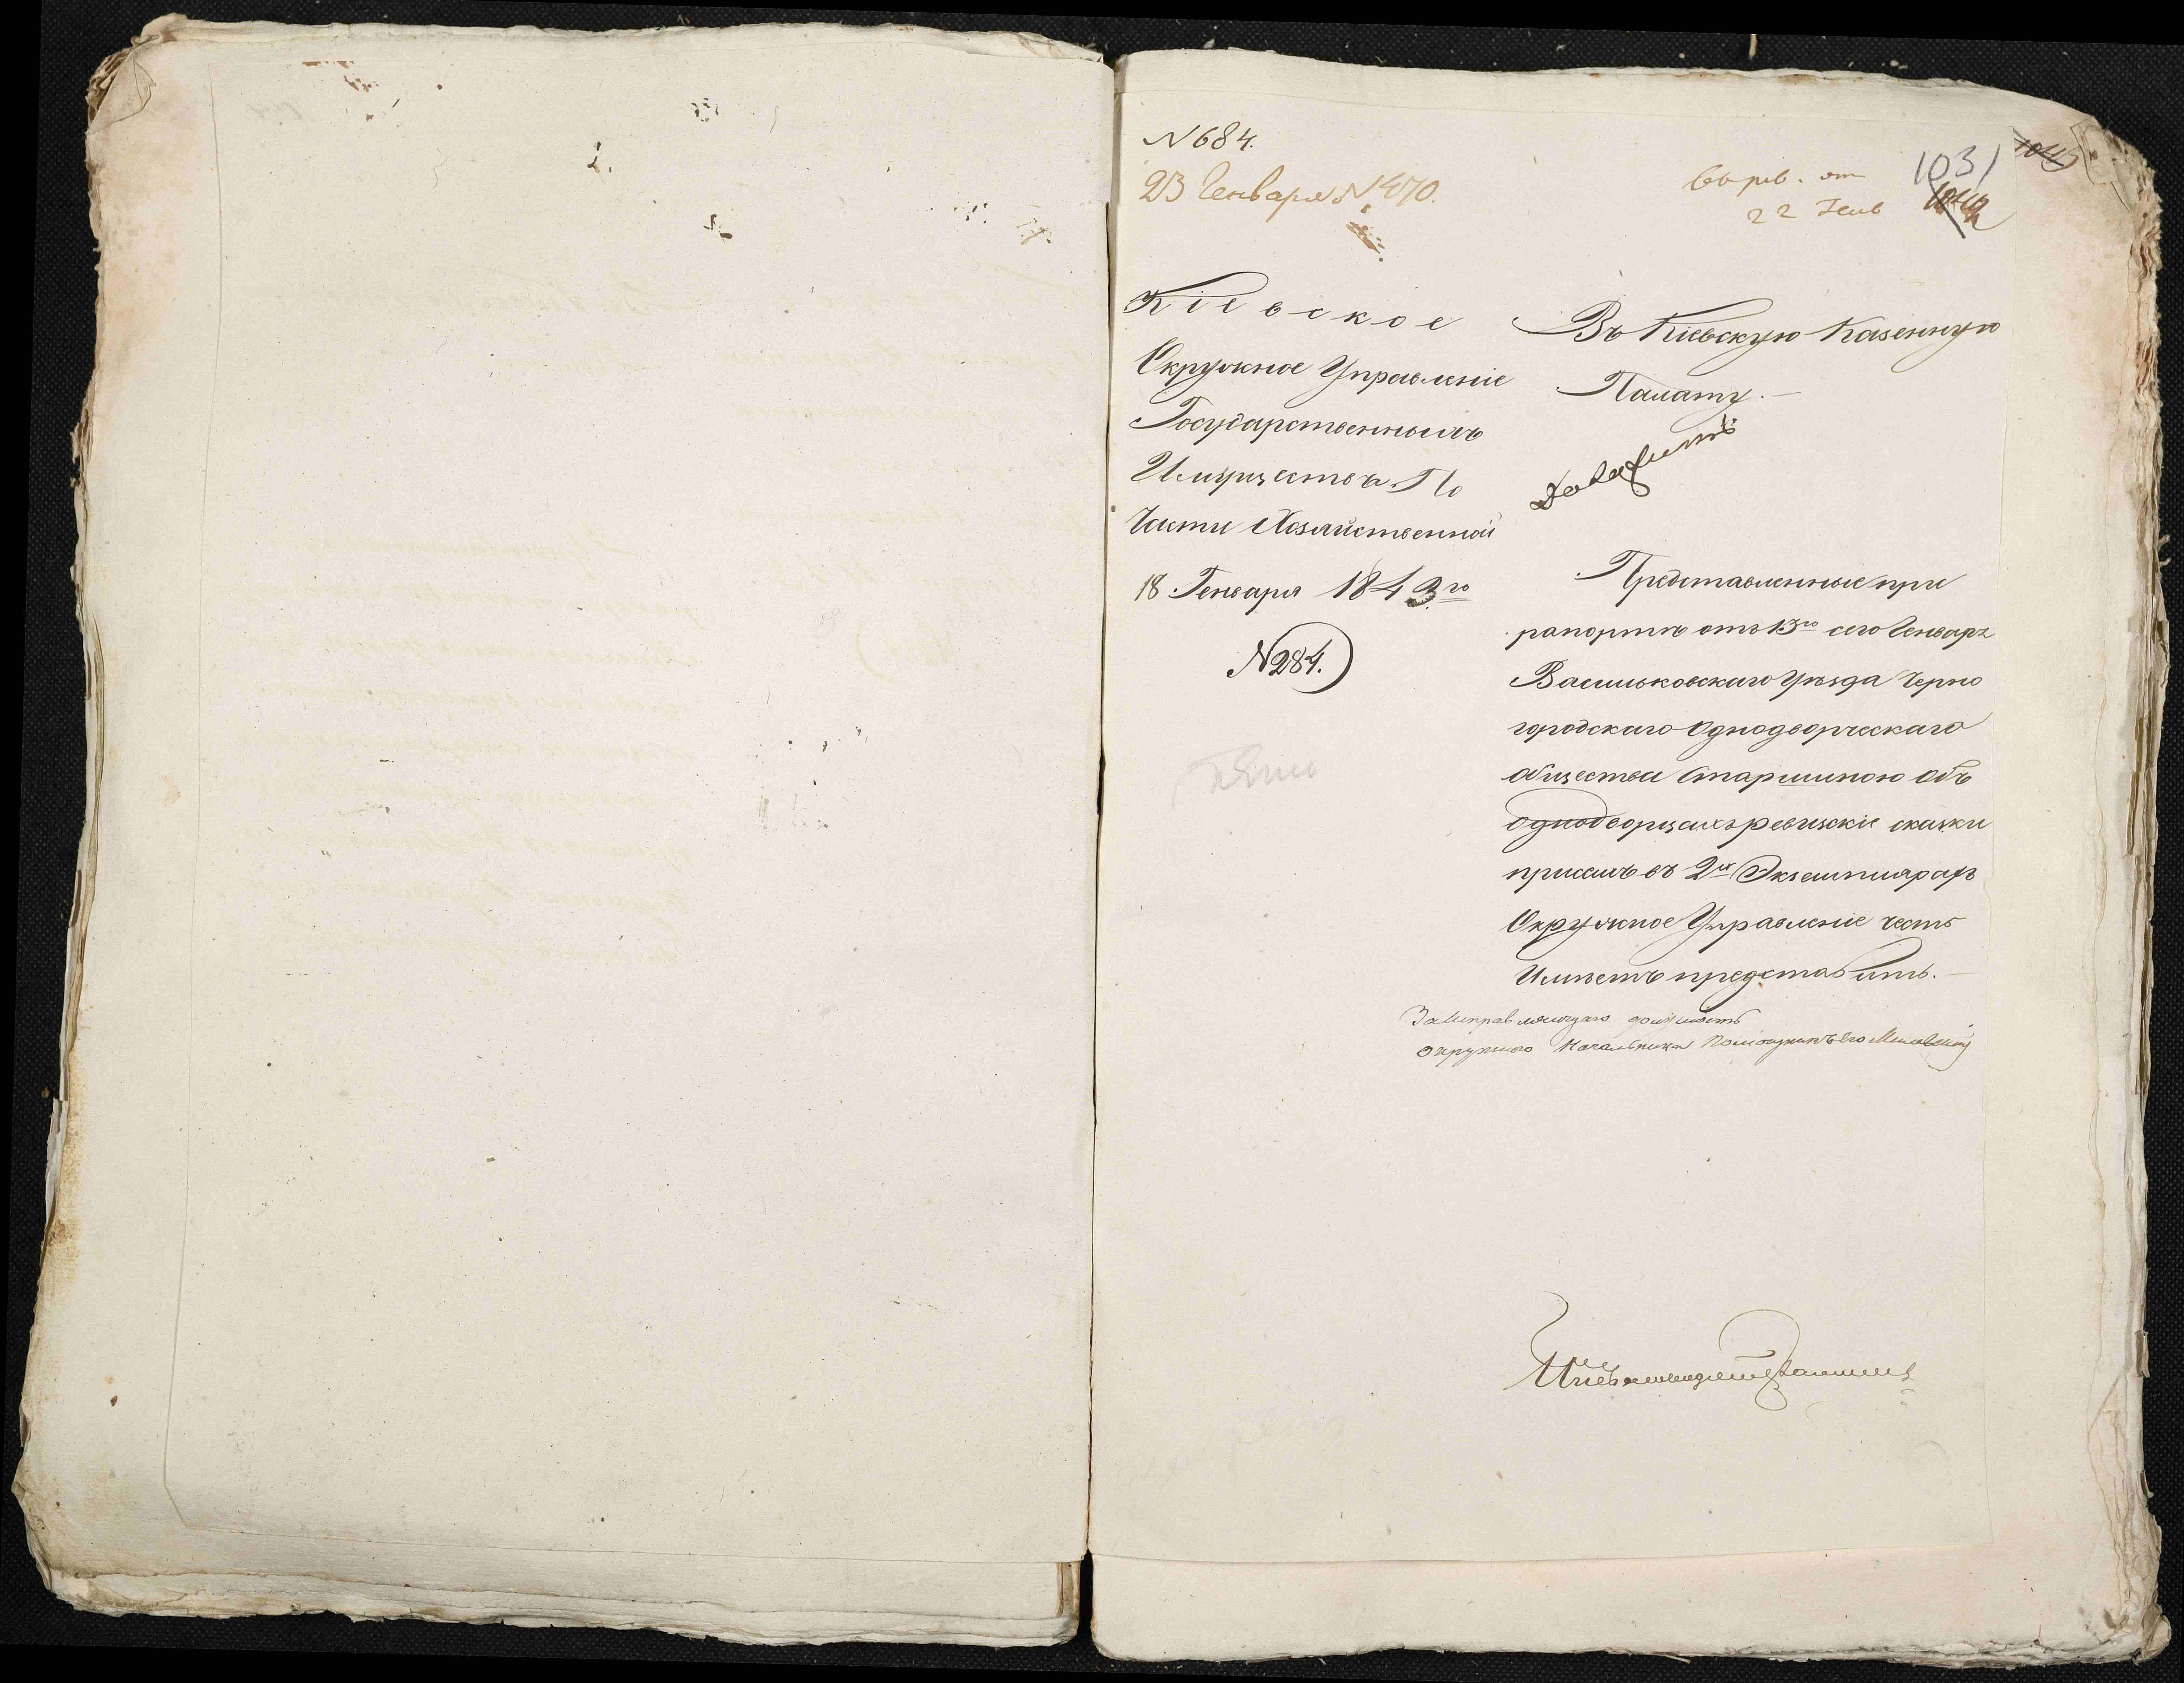 N 684.
23 Генваря N 470.
22 Генв
1031
1045
Кіевское
Окружное Управленіе
Государственныхъ
Имуществъ. По
Части Хозяйственной
18 Генваря 1843 го
N 284.
Въ Кіевскую Казенную
Палату.—
Представленные при
рапортѣ отъ 13го сего Генваря
Васильковскаго Уѣзда Черно
городскаго Однодворческаго
общества Старшиною объ
однодворцахъ ревизскіе сказки
при семъ въ 2хъ Экземплярахъ
Окружное Управленіе честь
Имѣетъ представить.—
За Исправляющаго должность
Окружного Начальника Помощникъ его